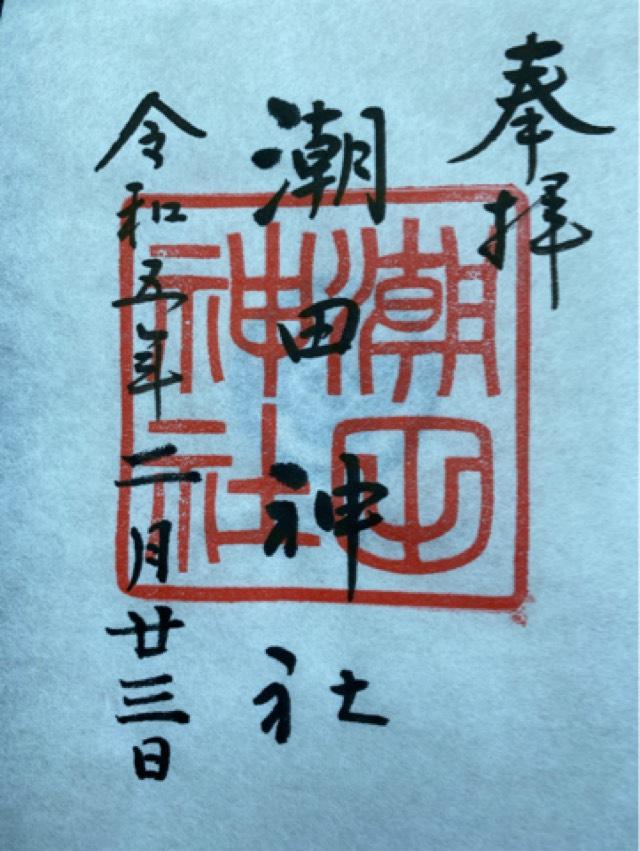 奉拝
潮田神社
令和五年二月廿三日
潮田
神社